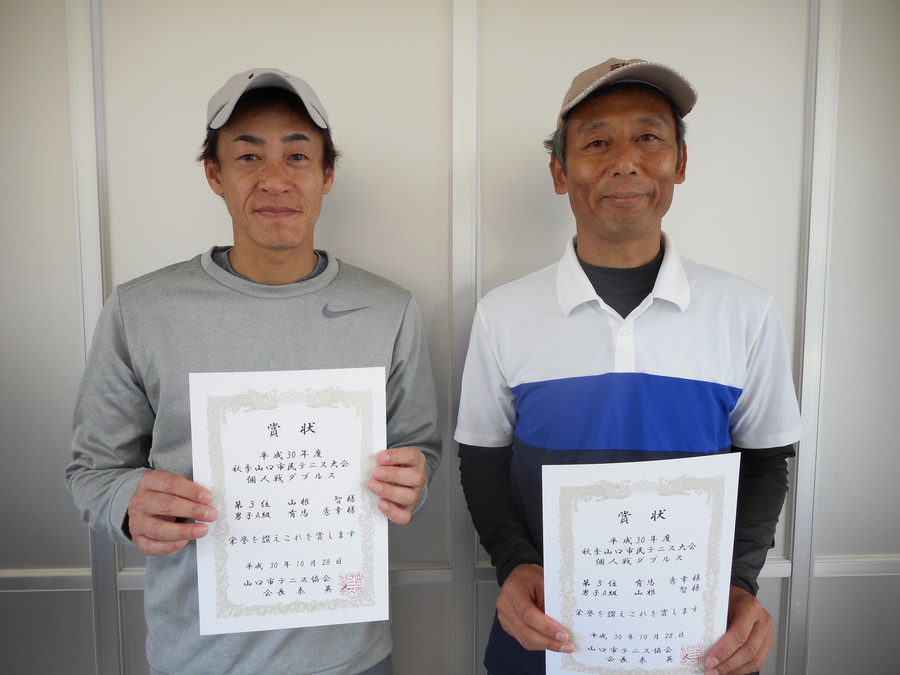 賞状
平成30年度
秋季山口市民テニス大会
個人戦ダブルス
第3位 山根 智様
男子A級 有馬 秀幸様
栄誉を讃えこれを賞します
平成30年10月28日
山口市テニス協会
会長 泰 英
賞状
平成30年度
秋季山口市民テニス大会
個人戦ダブルス
第3位 有馬 秀幸様
男子A級 山根 智様
栄誉を讃えこれを賞します
平成30年10月28日
山口市テニス協会
会長 泰 英